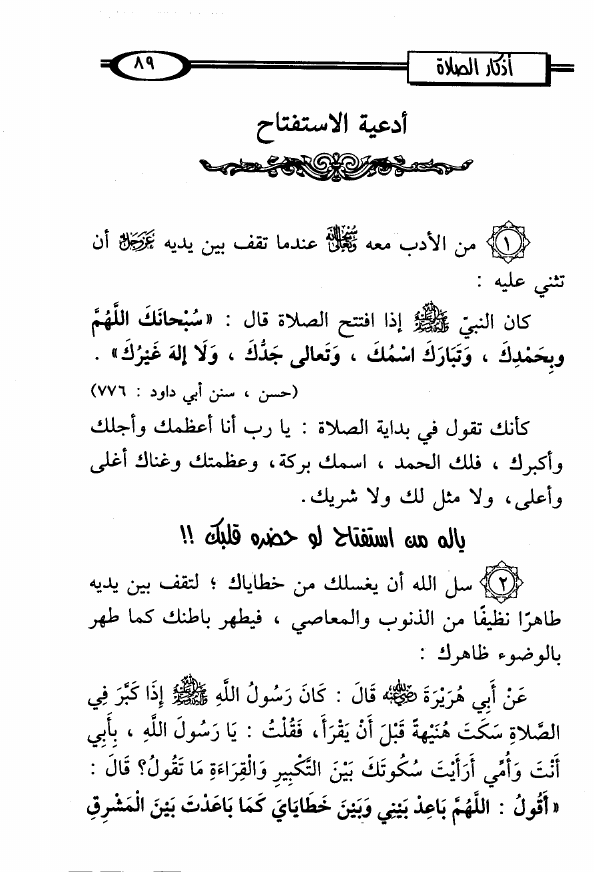 أذكار الصلاة
٨٩
أدعية الاستفتاح
١ من الأدب معه سبحانه وتعالى عندما تقف بين يديه عز وجل أن
تثني عليه :
كان النبيّ ﷺ إذا افتتح الصلاة قال : «سُبْحانَكَ اللَّهُمَّ
وبِحَمْدِكَ ، وَتَبَارَكَ اسْمُكَ ، وَتَعالى جَدُّكَ ، وَلَا إلهَ غَيْرُكَ» .
(حسن ، سنن أبي داود : ٧٧٦)
كأنك تقول في بداية الصلاة : يا رب أنا أعظمك وأجلك
وأكبرك ، فلك الحمد ، اسمك بركة، وعظمتك وغناك أغلى
وأعلى، ولا مثل لك ولا شريك.
ياله من استفتاح لو حضره قلبك !!
٢ سل الله أن يغسلك من خطاياك ؛ لتقف بين يديه
طاهرًا نظيفًا من الذنوب والمعاصي ، فيطهر باطنك كما طهر
بالوضوء ظاهرك :
عَنْ أَبِي هُرَيْرَةَ رضي الله عنه قَالَ : كَانَ رَسُولُ اللَّهِ ﷺ إِذَا كَبَّرَ فِي
الصَّلاةِ سَكَتَ هُنَيْهةً قَبْلَ أَنْ يَقْرَأَ، فَقُلْتُ : يَا رَسُولَ اللَّهِ ، بِأَبِي
أَنْتَ وَأُمِّي أَرَأَيْتَ سُكُوتَكَ بَيْنَ التَّكْبِيرِ وَالْقِرَاءَةِ مَا تَقُولُ؟ قَالَ :
«أَقُولُ : اللَّهُمَّ بَاعِدْ بَيْنِي وَبَيْنَ خَطَايَايَ كَمَا بَاعَدْتَ بَيْنَ الْمَشْرِقِ